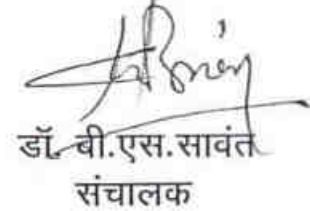 डॉ. बी.एस.सावंत
संचालक